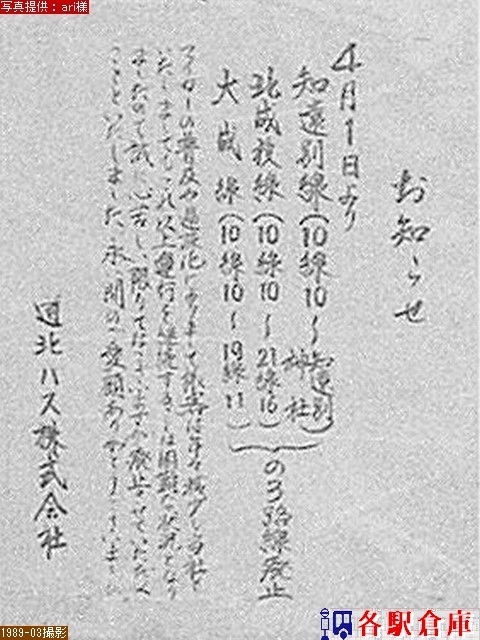 写真提供：ari様
お知らせ
4月1日より
知遠別線(10線10～知遠別神社)
北成校線(10線10～21線16)
大成線(10線10～19線11)
の3路線廃止
マイカーの普及や過疎化によりまして
これ以上運行を継続する
ましたので誠に心苦しい限りではございますが廃止させていただく
ことといたしました。永い間のご愛顧ありがとうございました。
道北バス株式会社
1989-03撮影
各駅倉庫